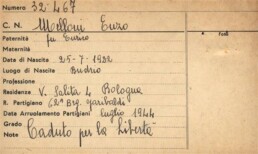 Numero 32.467
C. N. Melloni Enzo
Paternità fu Enrico
Maternità
Data di Nascita 25-7-1922
Luogo di Nascita Budrio
Professione
Residenza V. Salita 4 Bologna
R. Partigiano 62ª Brg. garibaldi
Data Arruolamento Partigiani luglio 1944
Grado
Note "Caduto per la Libertà"